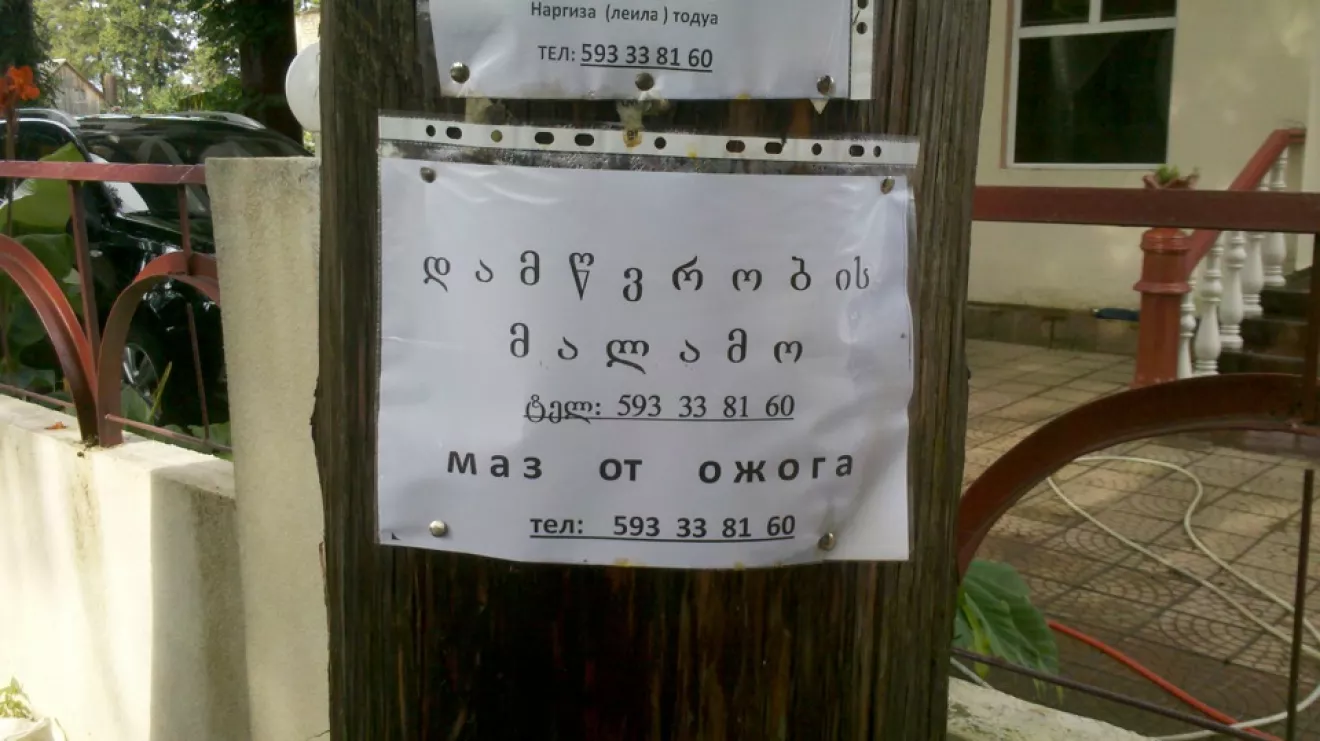 Наргиза (леила ) тодуа
ТЕЛ: 593 33 81 60
დამწვრობის
მალამო
ტელ: 593 33 81 60
маз от ожога
тел: 593 33 81 60